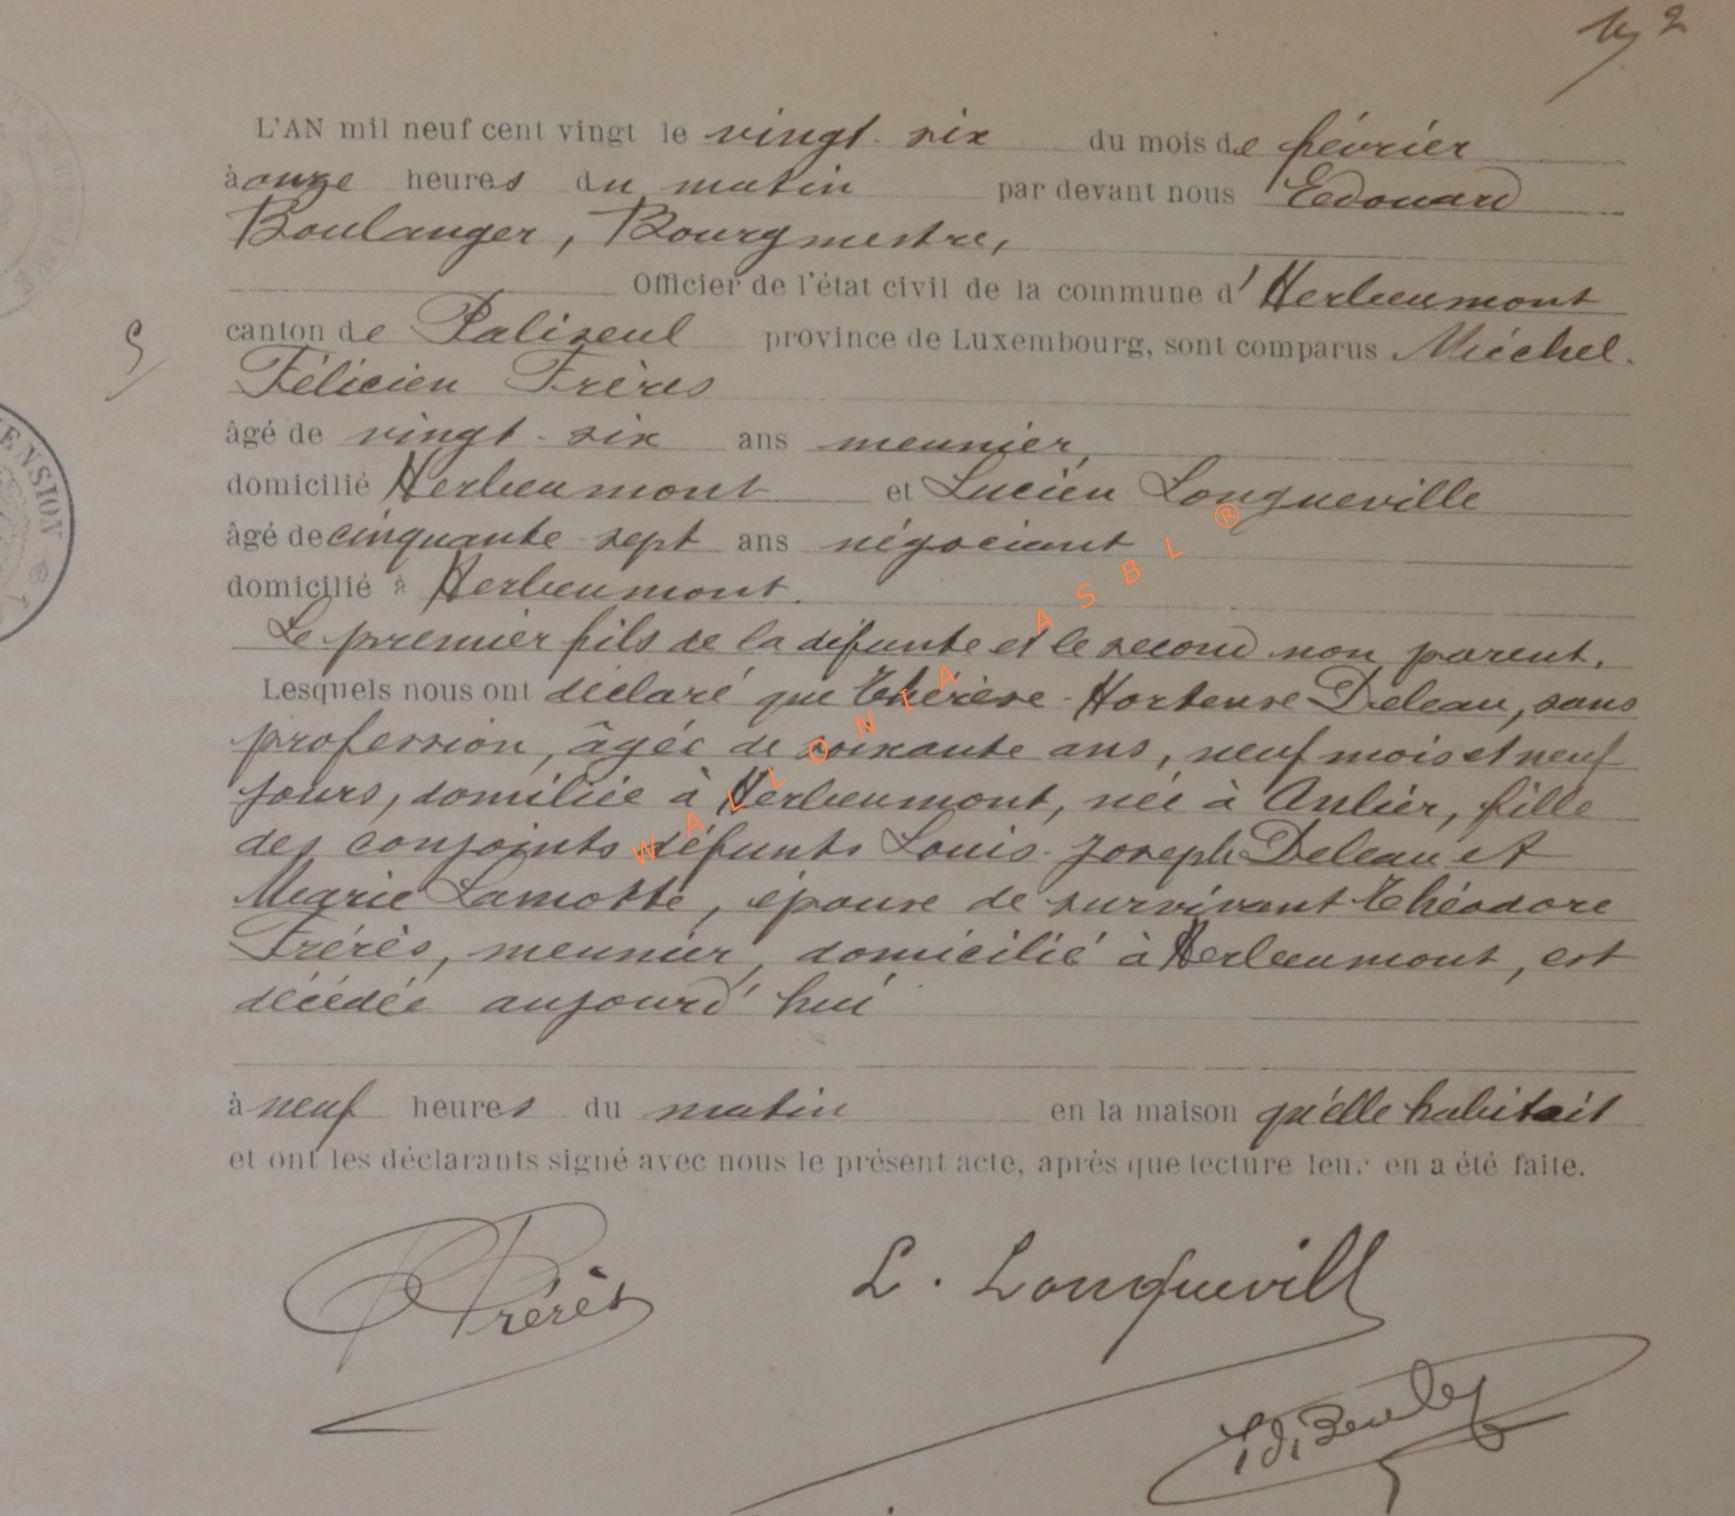 2
L'AN mil neuf cent vingt le vingt-six du mois de février
à onze heures du matin par devant nous Edouard
Boulanger, Bourgmestre,
Officier de l'état civil de la commune d'Herbeumont
canton de Paliseul province de Luxembourg, sont comparus Michel-
Félicien Frères
âgé de vingt-six ans meunier,
domicilié Herbeumont et Lucien Longueville
âgé de cinquante sept ans négociant
domicilié à Herbeumont.
Le premier fils de la défunte et le second non parent.
Lesquels nous ont déclaré que Thérèse-Hortense Deleau, sans
profession, âgée de soixante ans, neuf mois et neuf
jours, domiciliée à Herbeumont, née à Anlier, fille
des conjoints défunts Louis-Joseph Deleau et
Marie Lamotte, épouse de survivant Théodore
Frérès, meunier, domicilié à Herbeumont, est
décédée aujourd'hui
à neuf heures du matin en la maison qu'elle habitait
et ont les déclarants signé avec nous le présent acte, après que lecture leur en a été faite.
Frérès
L. Longuevill
Ed.
ENSION
WALLONIA ASBL ®